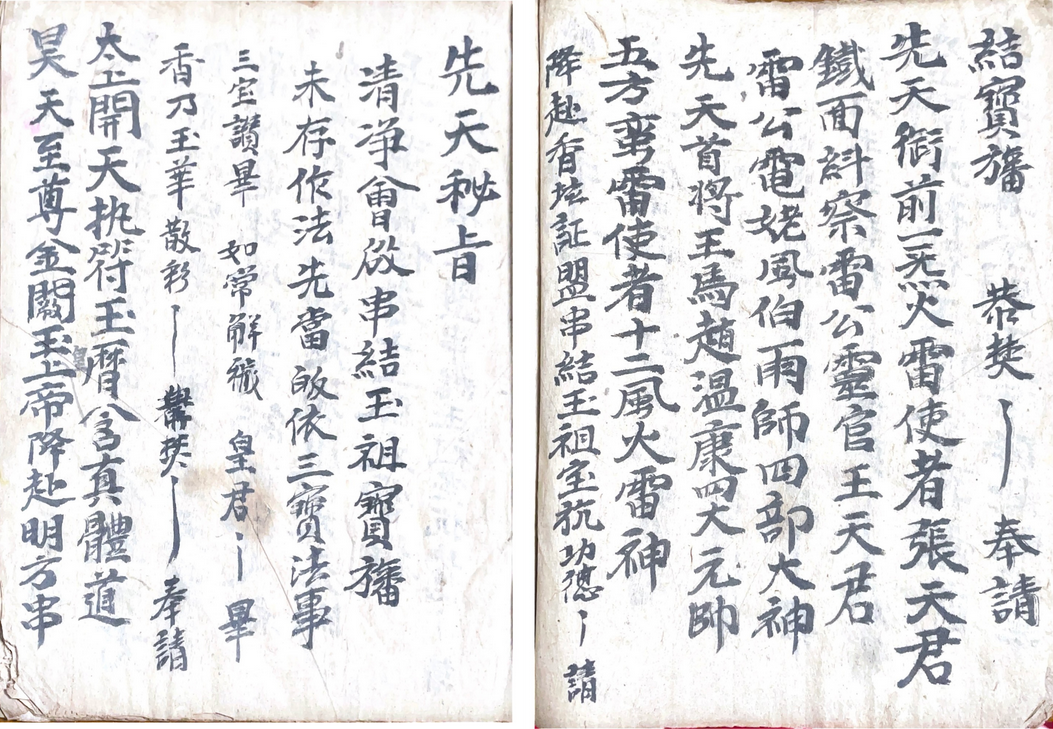 先天秘旨
清淨會啟串結玉祖寶旛
未存作法先當皈依三寶法事
三宝讚畢 如常解穢 皇君 畢
香乃玉華散彩 焚 奉請
太上開天執符玉曆含真體道
昊天至尊金闕玉皇上帝降赴明方串
結寶旛 恭焚 奉請
先天衙前一炁火雷使者張天君
鐵面糾察雷公靈官王天君
雷公電姥風伯雨師四部大神
先天首將王馬趙溫康四大元帥
五方蛮雷使者十二風火雷神
降赴香坛証盟串結玉祖宝旐功德 請